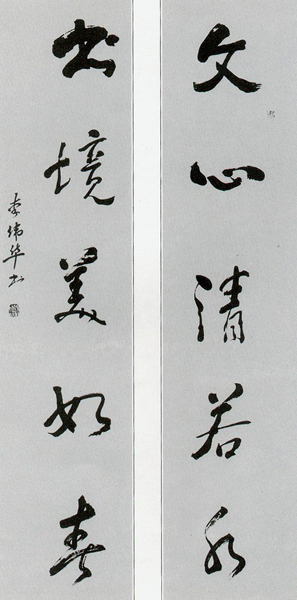 文心清若水
书境美如春
李伟华书